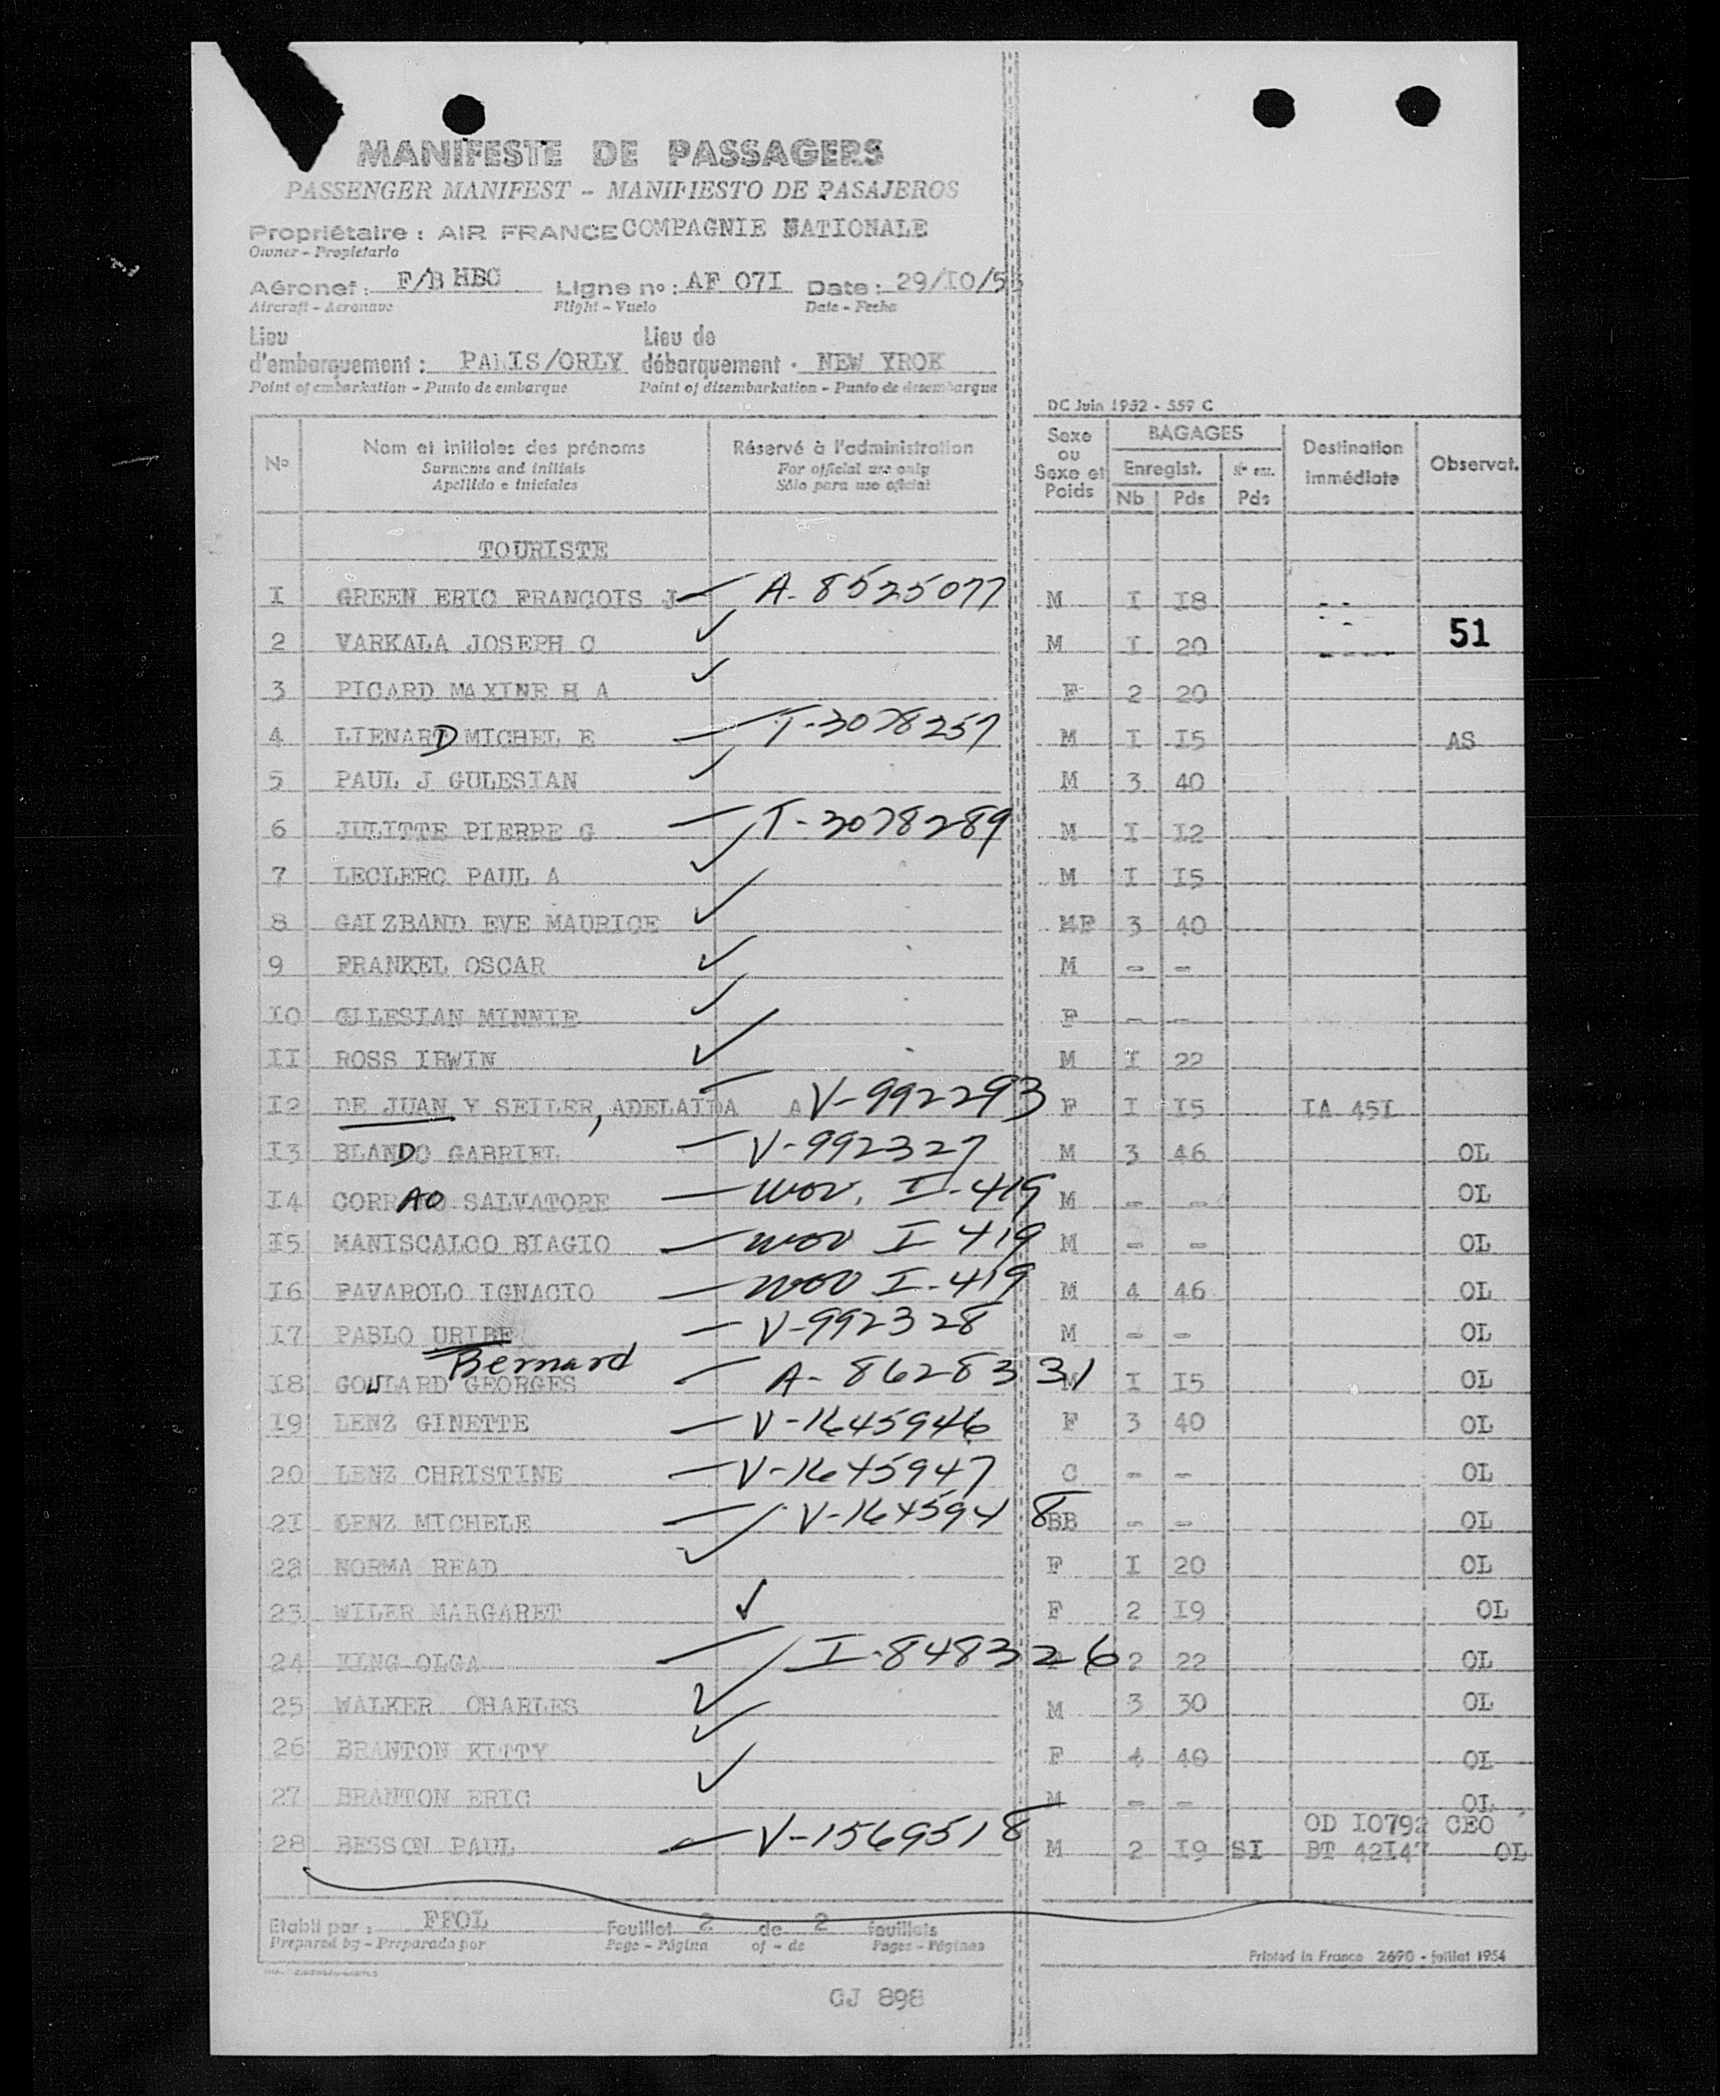 MANIFESTE DE PASSAGERS
PASSENGER MANIFEST - MANIFIESTO DE PASAJEROS
Propriétaire : AIR FRANCE COMPAGNIE NATIONALE
Owner - Propietario
Aéronef : F/B HBC Ligne no : AF 07I Date : 29/IO/5
Aircraft - Aeronave Flight - Vuelo Date - Fecha
Lieu Lieu de
d'embarquement : PARIS/ORLY débarquement : NEW YROK
Point of embarkation - Punto de embarque Point of disembarkation - Punto de desembarque
DC Juin 1952 - 559 C
No Nom et initiales des prénoms Réservé à l'administration Sexe ou Sexe et Poids BAGAGES Destination immédiate Observat.
Surname and initials For official use only Enregist.
Apellido e iniciales Sólo para uso oficial Nb Pds Pds
TOURISTE
I GREEN ERIC FRANCOIS J A-8525077 M I I8
2 VARKALA JOSEPH C ✓ M I 20 51
3 PICARD MAXINE H A ✓ F 2 20
4 LIENARD MICHEL E T-3078257 M I I5 AS
5 PAUL J GULESIAN ✓ M 3 40
6 JULITTE PIERRE G T-3078289 M I I2
7 LECLERC PAUL A ✓ M I I5
8 GALZBAND EVE MAURICE ✓ MF 3 40
9 FRANKEL OSCAR ✓ M - -
IO GULESIAN MINNIE ✓ F - -
II ROSS IRWIN ✓ M I 22
I2 DE JUAN Y SEILER, ADELAIDA A V-992293 F I I5 IA 45I
I3 BLANDO GABRIEL V-992327 M 3 46 OL
I4 CORRAO SALVATORE WOV. I-419 M - - OL
I5 MANISCALCO BIAGIO WOV I 419 M - - OL
I6 FAVAROLO IGNACIO WOV I-419 M 4 46 OL
I7 PABLO URIBE V-992328 M - - OL
Bernard
I8 GOULARD GEORGES A-8628331 M I I5 OL
I9 LENZ GINETTE V-1645946 F 3 40 OL
20 LENZ CHRISTINE V-1645947 C - - OL
2I LENZ MICHELE V-1645948 BB - - OL
22 NORMA READ ✓ F I 20 OL
23 WILER MARGARET ✓ F 2 I9 OL
24 KING OLGA I-8483226 2 22 OL
25 WALKER CHARLES ✓ M 3 30 OL
26 BRANTON KITTY ✓ F 4 40 OL
27 BRANTON ERIC ✓ M - - OL
OD IO792 CEO
28 BESSON PAUL V-1569518 M 2 I9 SI BT 42I47 OL
Etabli par : FFOL Feuillet 2 de 2 feuillets
Prepared by - Preparado por Page - Página of - de Pages - Páginas
Printed in France 2690 - juillet 1954
GJ 898